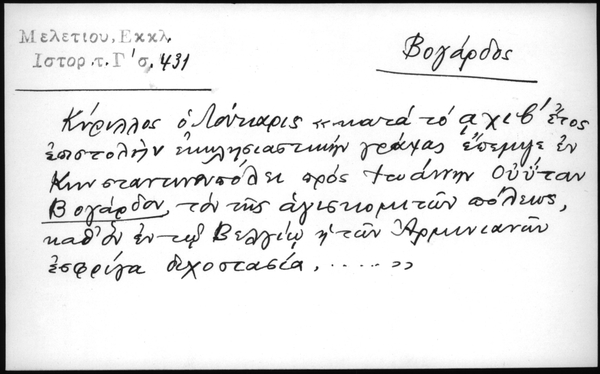 Μελετίου, Εκκλ.
Ιστορ. τ. Γ' σ. 431
Βογάρδος
Κύριλλος ὁ Λούκαρις «κατὰ τό αχιβ' ἔτος
ἐπιστολὴν ἐκκλησιαστικήν γράψας ἔπεμψε ἐν
Κωνσταντινουπόλει πρός Ἰωάννην Οὐΰταν
Βογάρδον, τόν τῆς ἁγιστκομιτῶν πόλεως,
καθ' ὅν ἐν τῷ Βελγίῳ ἡ τῶν Ἀρμινιανῶν
ἐσφρίγα διχοστασία, ..... »